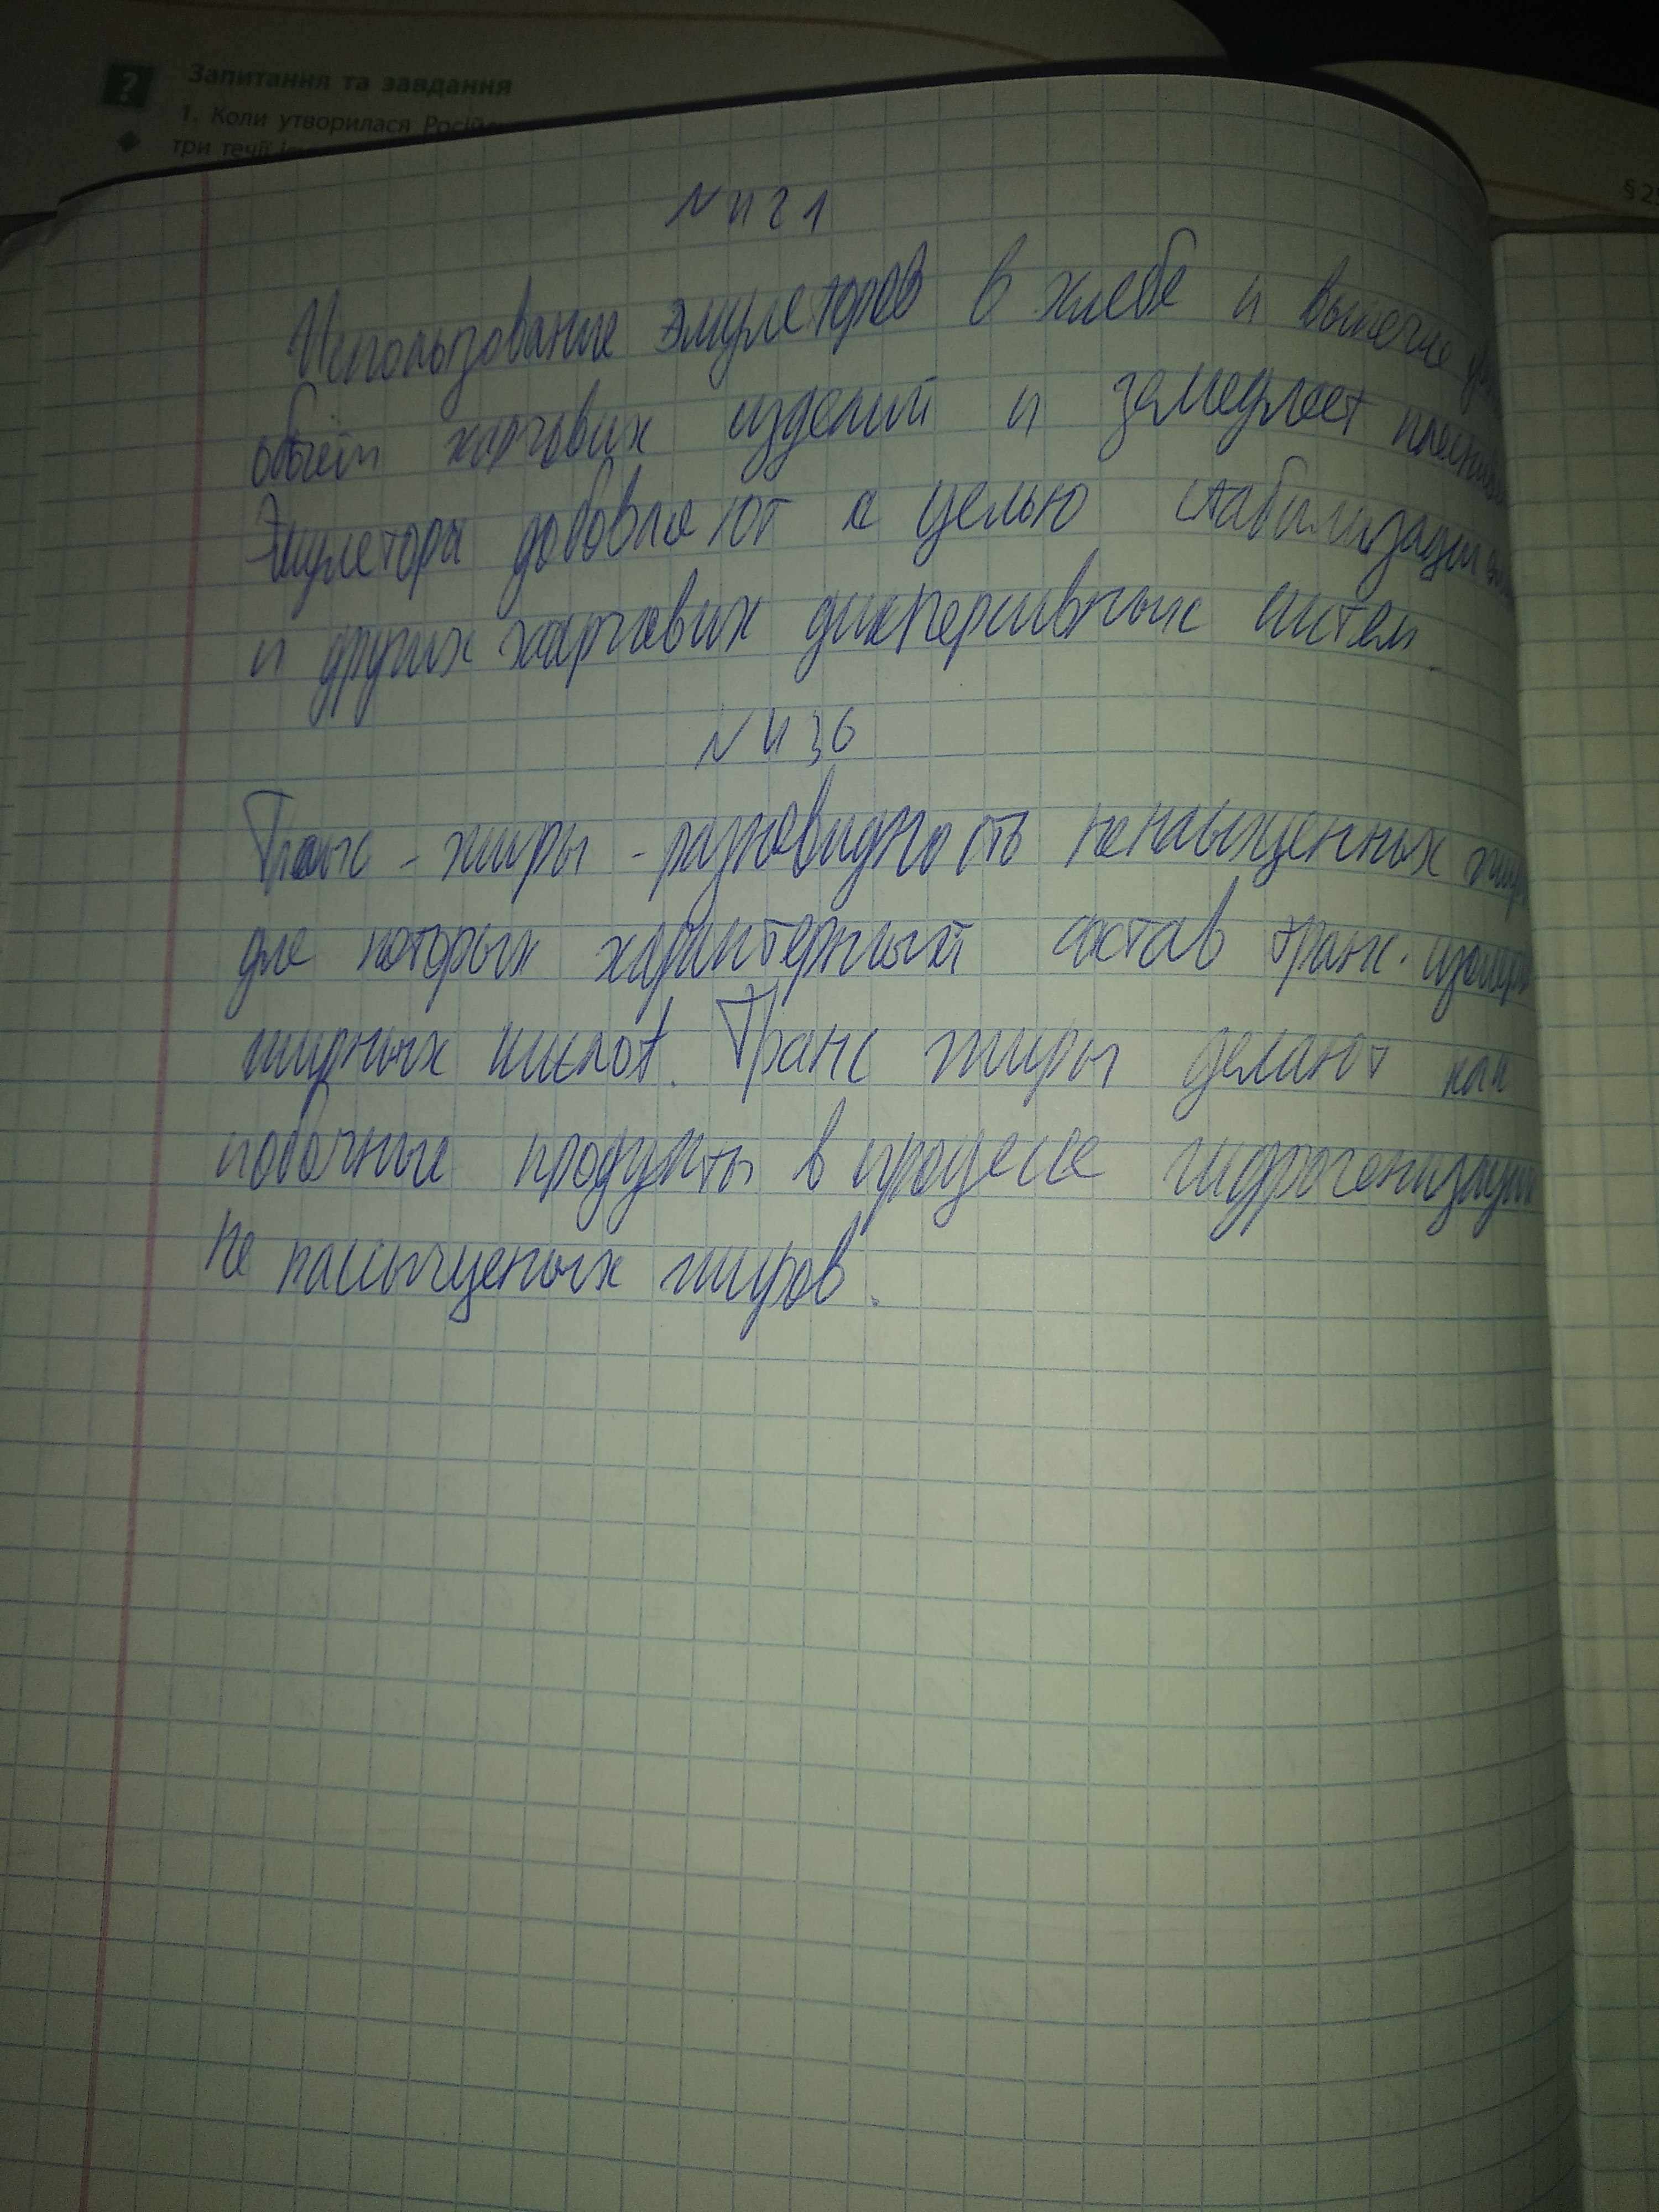 Запитання та завдання
1. Коли утворилася
три течії
§2
N 421
Использование эмулеторов в хлебе и выпечке
объём харчових изделий и замедляет
Эмулетора добовляют с целью стабилизации
и других харчових дисперсивных систем.
N 436
Транс - жиры - разновидность ненасыщенных
для которых характерный состав транс.
жирных кислот. Транс жиры делают как
побочные продукты в процессе гидрогенизации
не насыщеных жиров.